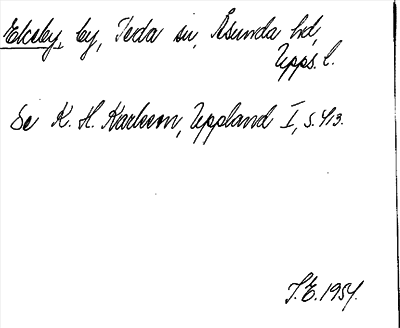 Ekeby, by, Teda sn, Åsunda hd,
Upps. l.
Se K. H. Karlsson, Uppland I, s. 413.
S.E. 1954.